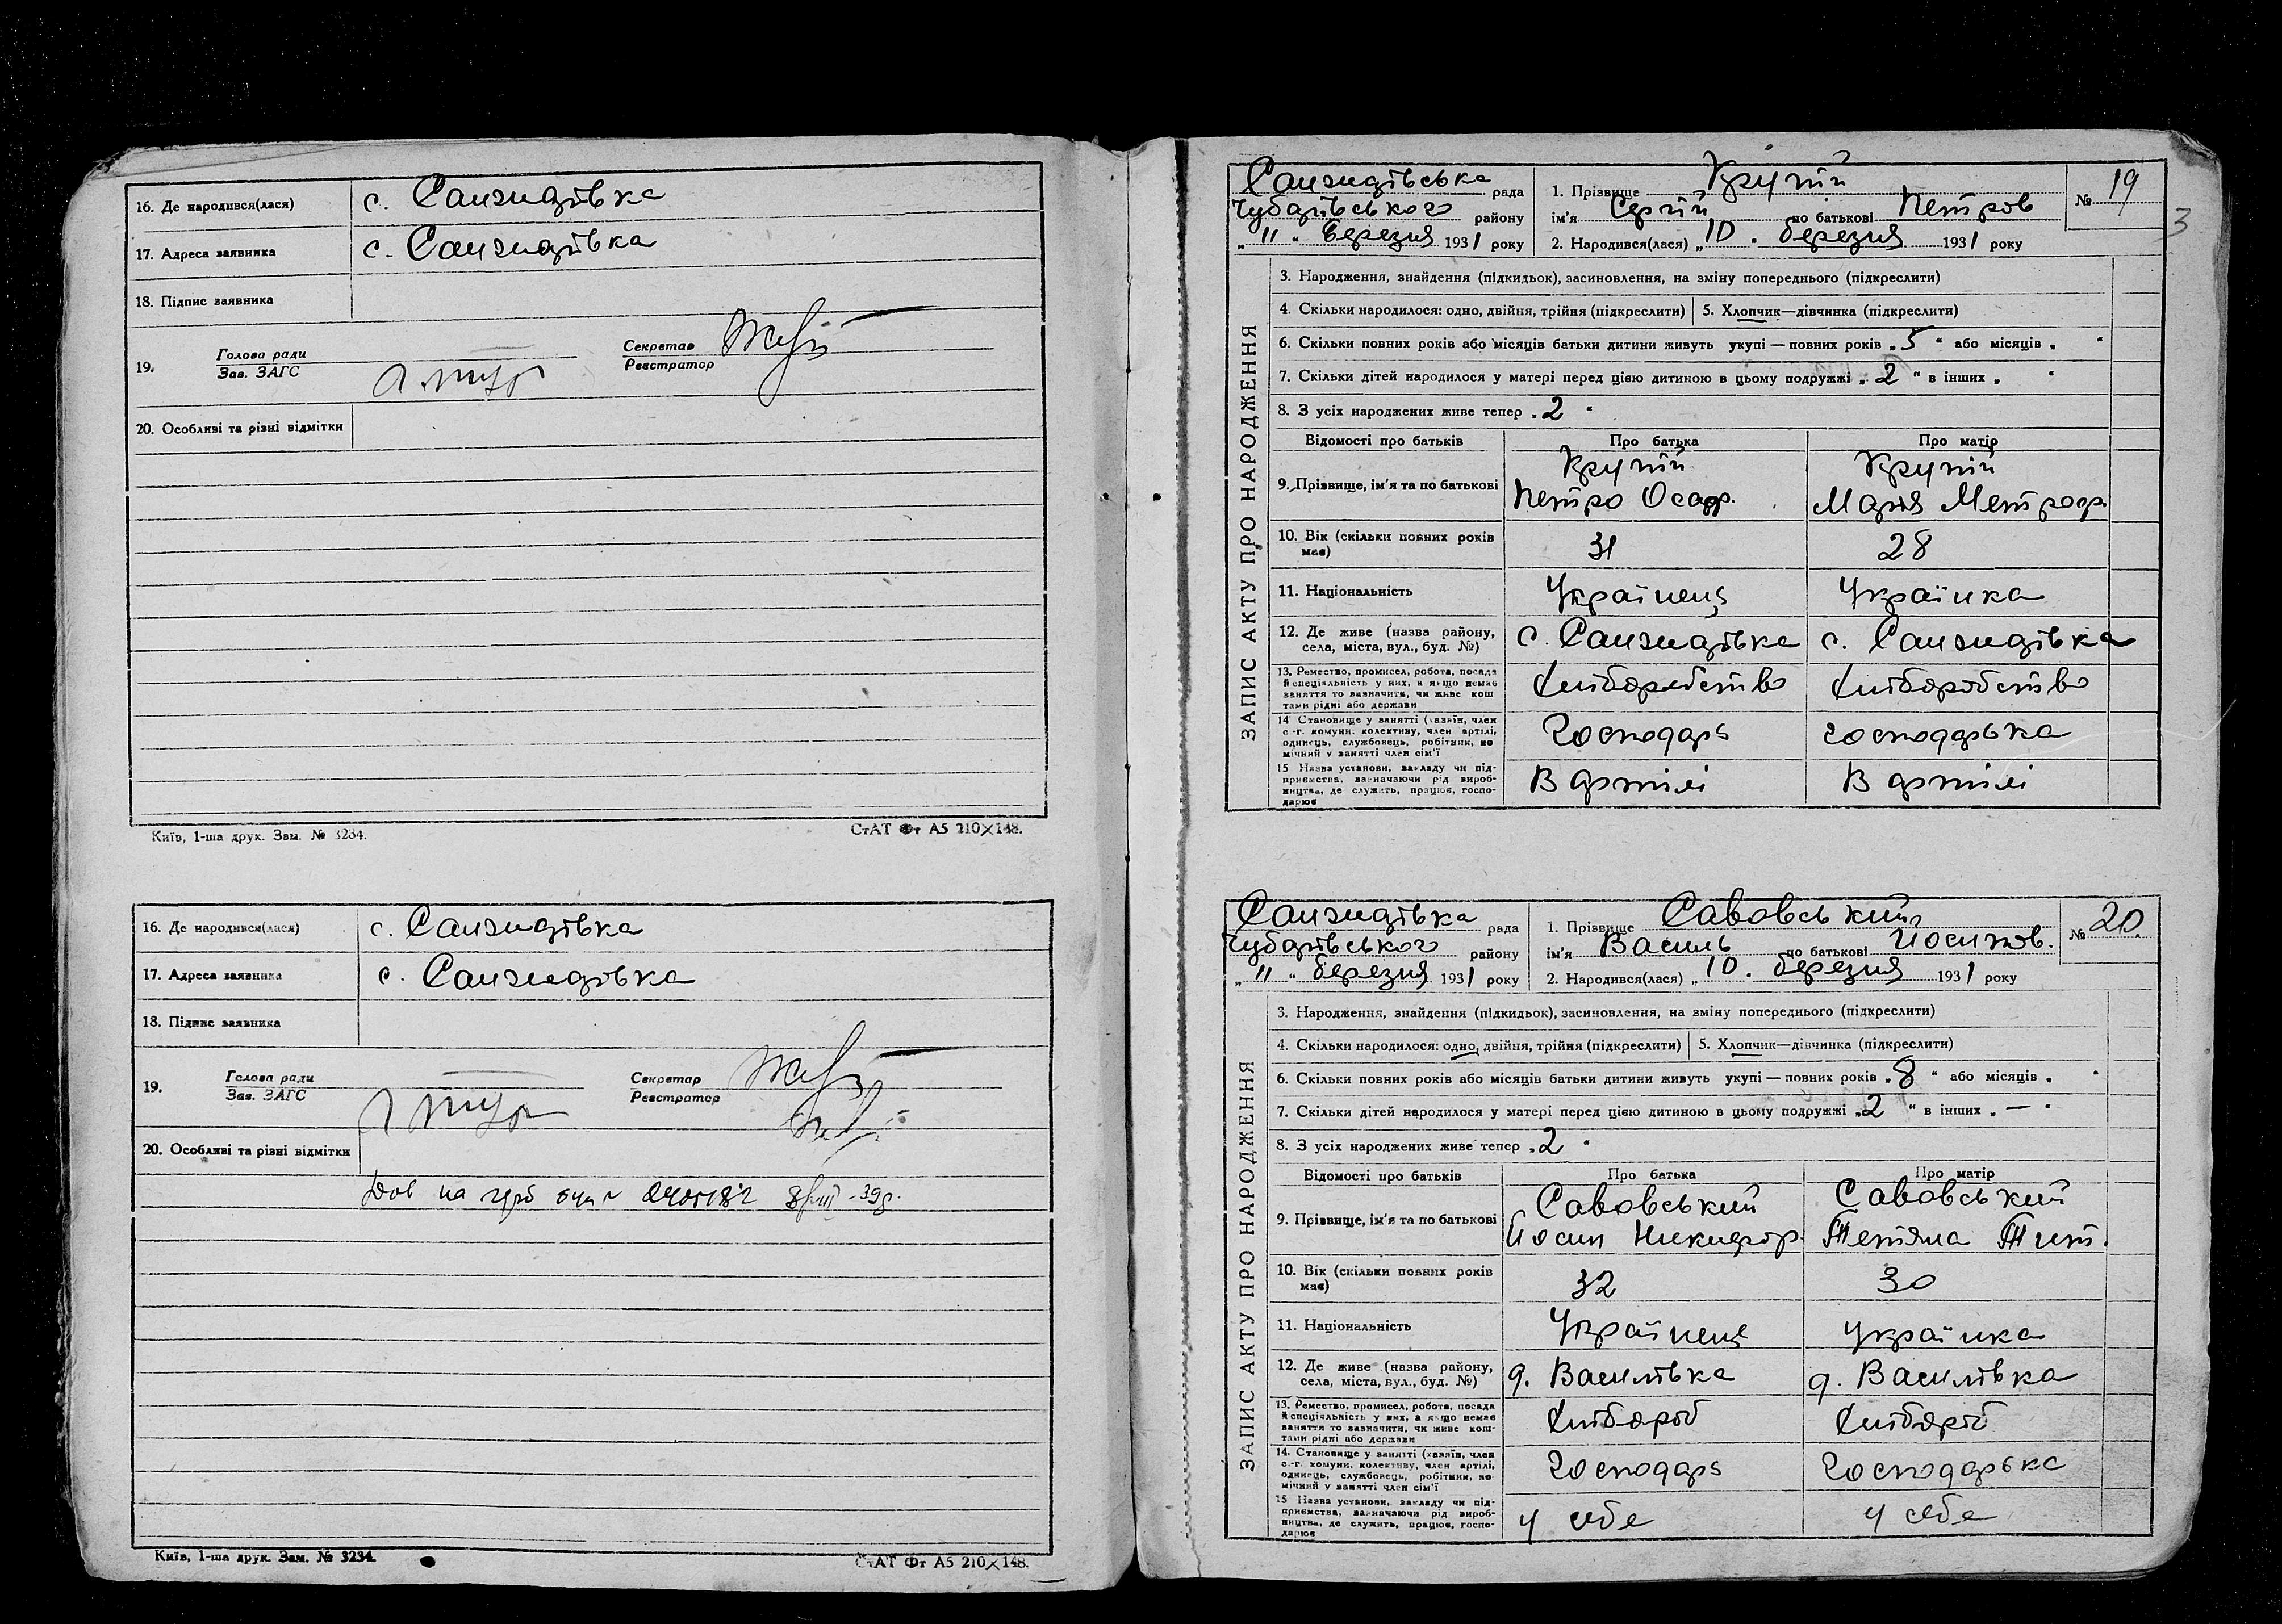 16. Де народився(лася) с. Санжидівка
17. Адреса заявника с. Санжидівка
18. Підпис заявника
19. Голова ради
Зав. ЗАГС
Секретар
Реєстратор
20. Особливі та різні відмітки
Київ, 1-ша друк. Зам. № 3234. СтАТ Фт А5 210×148.
16. Де народився(лася) с. Санжидівка
17. Адреса заявника с. Санжидівка
18. Підпис заявника
19. Голова ради
Зав. ЗАГС
Секретар
Реєстратор
20. Особливі та різні відмітки
Київ, 1-ша друк. Зам. № 3234. СтАТ Фт А5 210×148.
3
ЗАПИС АКТУ ПРО НАРОДЖЕННЯ
Санжидівська рада
Чубарівського району
„ 11 “ березня 1931 року
1. Прізвище Крупій
ім'я Сергій по батькові Петров
2. Народився(лася) „ 10 . березня 1931 року
№ 19
3. Народження, знайдення (підкидьок), засиновлення, на зміну попереднього (підкреслити)
4. Скільки народилося: одно, двійня, трійня (підкреслити) 5. Хлопчик—дівчинка (підкреслити)
6. Скільки повних років або місяців батьки дитини живуть укупі — повних років „ 5 “ або місяців „ “
7. Скільки дітей народилося у матері перед цією дитиною в цьому подружжі „ 2 “ в інших „ “
8. З усіх народжених живе тепер „ 2 “
Відомості про батьків Про батька Про матір
9. Прізвище, ім'я та по батькові Крупій Крупій
Петро Осаф. Марія Метроф.
10. Вік (скільки повних років має) 31 28
11. Національність Українець Українка
12. Де живе (назва району, села, міста, вул., буд. №) с. Санжидівка с. Санжидівка
13. Ремество, промисел, робота, посада й спеціяльність у них, а якщо немає заняття то зазначити, чи живе коштами рідні або держави Хліборобство Хліборобство
14 Становище у занятті (хазяїн, член с.-г. комуни, колективу, член артілі, одинець, службовець, робітник, помічний у занятті член сім'ї Господарь господарька
15 Назва установи, закладу чи підприємства, зазначаючи рід виробництва, де служить, працює, господарює В артілі В артілі
ЗАПИС АКТУ ПРО НАРОДЖЕННЯ
Санжидівка рада
Чубарівського району
„ 11 “ березня 1931 року
1. Прізвище Савовський
ім'я Василь по батькові Йосипов.
2. Народився(лася) „ 10 . березня 1931 року
№ 20.
3. Народження, знайдення (підкидьок), засиновлення, на зміну попереднього (підкреслити)
4. Скільки народилося: одно, двійня, трійня (підкреслити) 5. Хлопчик—дівчинка (підкреслити)
6. Скільки повних років або місяців батьки дитини живуть укупі — повних років „ 8 “ або місяців „ “
7. Скільки дітей народилося у матері перед цією дитиною в цьому подружжі „ 2 “ в інших „ — “
8. З усіх народжених живе тепер „ 2 “
Відомості про батьків Про батька Про матір
9. Прізвище, ім'я та по батькові Савовський Савовський
Йосип Никифор. Тетяна Тит.
10. Вік (скільки повних років має) 32 30
11. Національність Українець Українка
12. Де живе (назва району, села, міста, вул., буд. №) д. Василівка д. Василівка
13. Ремество, промисел, робота, посада й спеціяльність у них, а якщо немає заняття то зазначити, чи живе коштами рідні або держави Хлібороб Хлібороб
14. Становище у занятті (хазяїн, член с.-г. комуни, колективу, член артілі, одинець, службовець, робітник, помічний у занятті член сім'ї Господарь Господарька
15 Назва установи, закладу чи підприємства, зазначаючи рід виробництва, де служить, працює, господарює у себе у себе